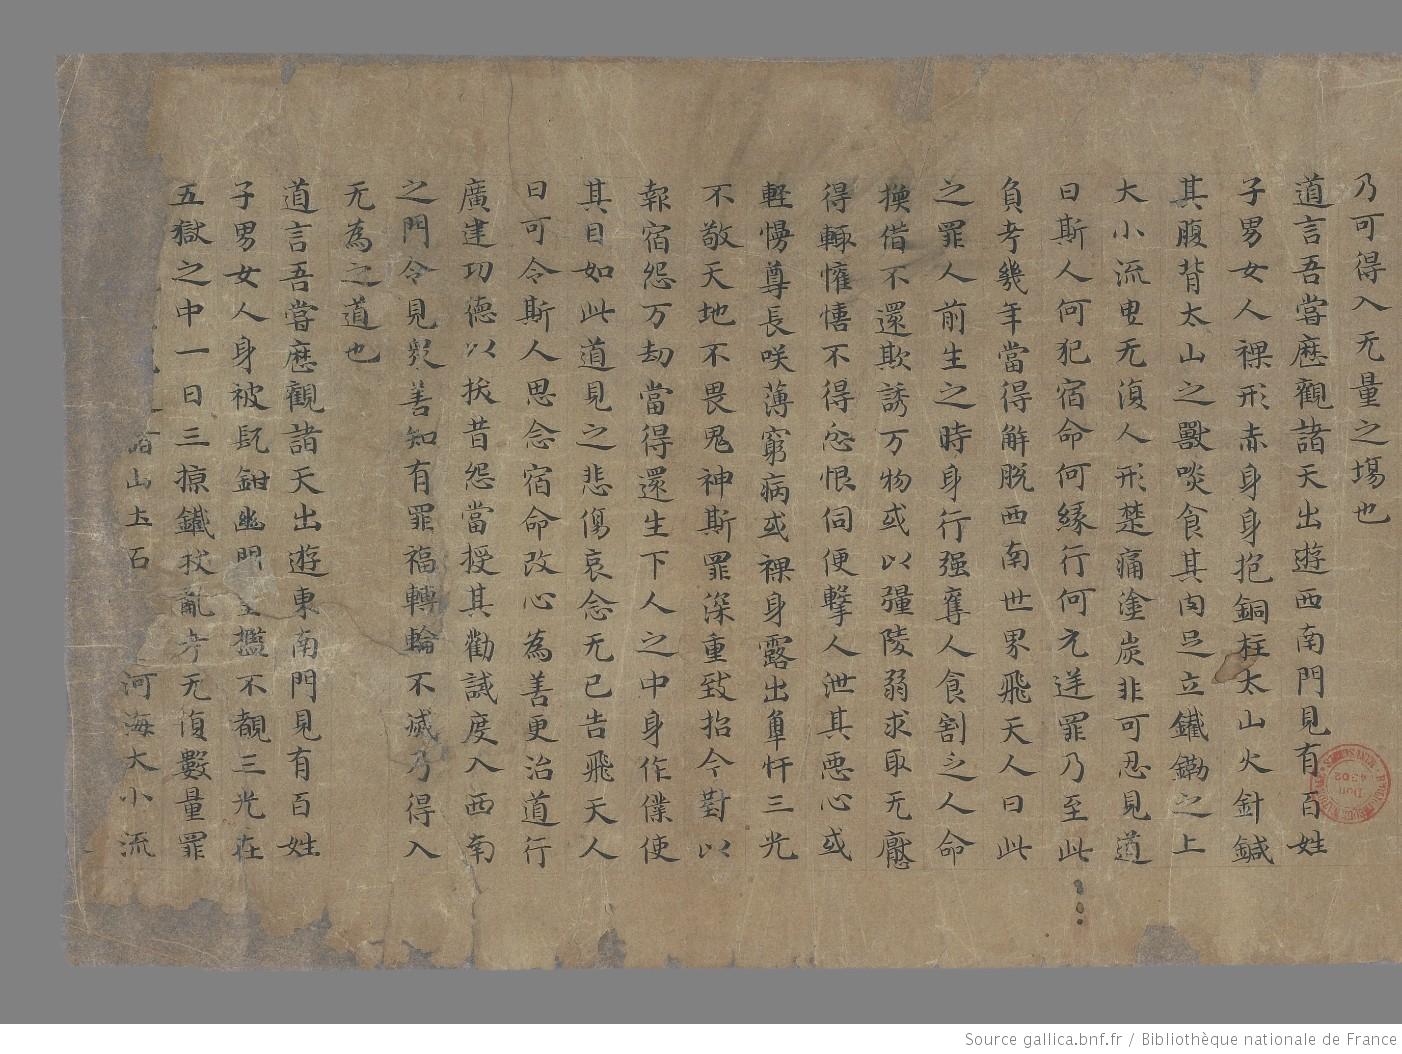 乃可得入无量之塲也
道言吾嘗歷觀諸天出遊西南門見有百姓
子男女人裸形赤身身抱銅柱太山火針鍼
其腹背太山之獸啖食其肉足立鐵鋤之上
大小流曳无復人形楚痛塗炭非可忍見道
曰斯人何犯宿命何緣行何元迕罪乃至此
負考幾年當得解脱西南世界飛天人曰此
之罪人前生之時身行强奪人食割之人命
換借不還欺誘万物或以彊陵弱求取无懕
得輙慛愭不得忿恨伺便擊人泄其惡心或
輊慢尊長咲薄窮病或裸身露出𠦝忓三光
不敬天地不畏鬼神斯罪深重致招今對以
報宿怨万劫當得還生下人之中身作僕使
其目如此道見之悲傷哀念无已告飛天人
曰可令斯人思念宿命改心為善更治道行
廣建功德以拔昔怨當授其勸誡度入西南
之門令見衆善知有罪福轉輪不滅乃得入
无為之道也
道言吾嘗歷觀諸天出遊東南門見有百姓
子男女人身被髡鉗幽閉 檻不覩三光在
五獄之中一日三掠鐵杖亂考无復數量罪
諸山土石 河海大小流
Source gallica.bnf.fr / Bibliothèque nationale de France